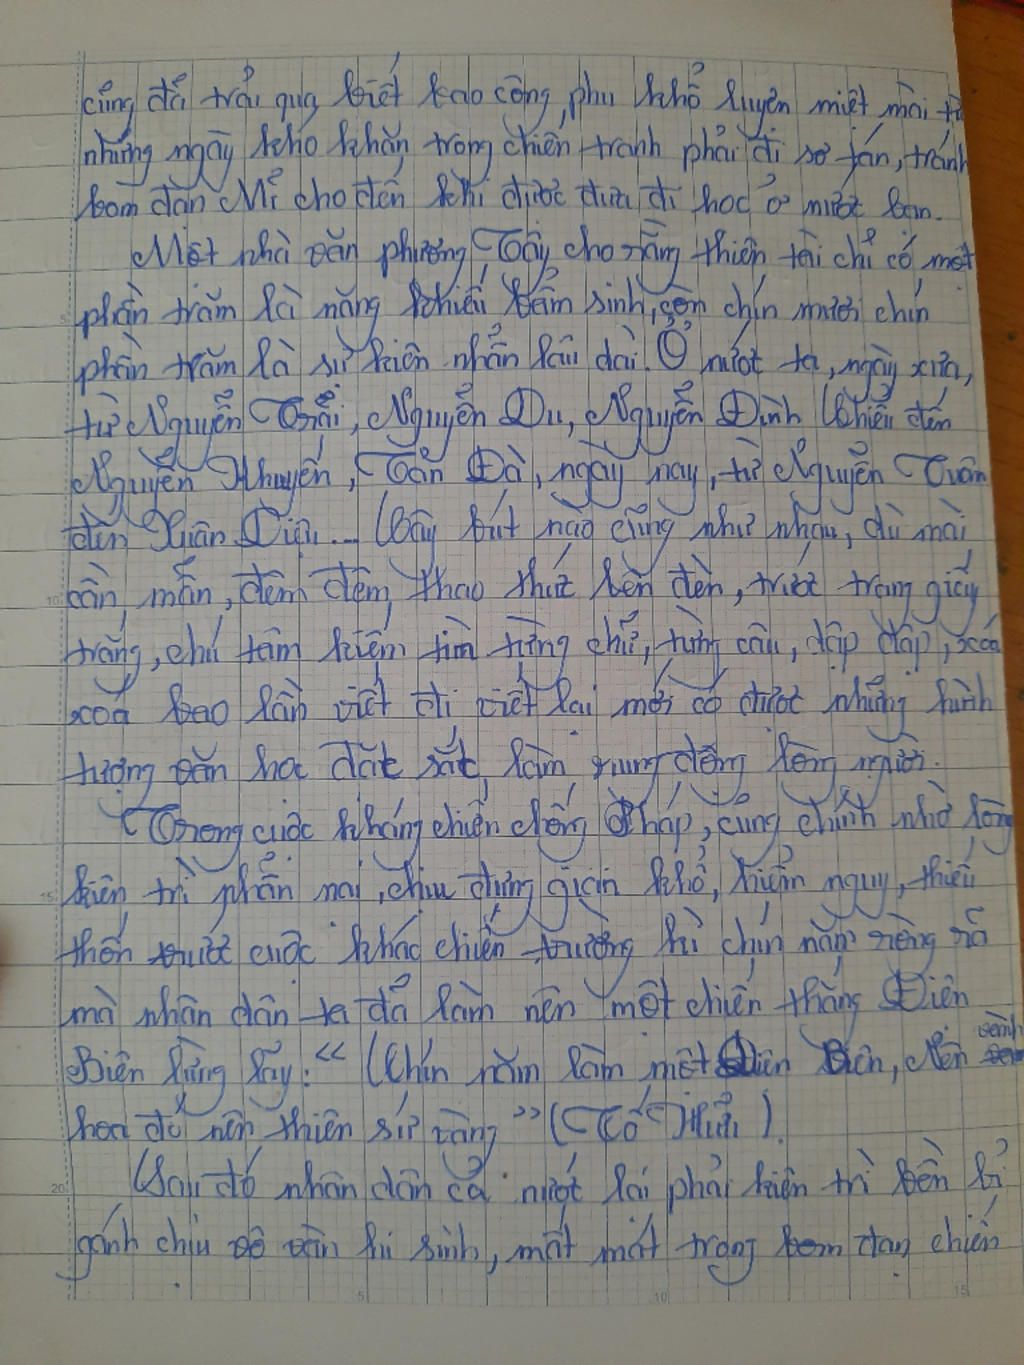 cũng đã trải qua biết bao công phu khổ luyện miệt mài từ
những ngày khó khăn trong chiến tranh phải đi sơ tán, tránh
bom đạn Mĩ cho đến khi được đưa đi học ở nước bạn.
Một nhà văn phương Tây cho rằng thiên tài chỉ có một
phần trăm là năng khiếu bẩm sinh, còn chín mươi chín
phần trăm là sự kiên nhẫn lâu dài. Ở nước ta, ngày xưa,
từ Nguyễn Trãi, Nguyễn Du, Nguyễn Đình Chiểu đến
Nguyễn Khuyến, Tản Đà, ngày nay, từ Nguyễn Tuân
đến Xuân Diệu... Cây bút nào cũng như nhau, dù mài
cần mẫn, đêm đêm thao thức bên đèn, trước trang giấy
trắng, chú tâm kiếm tìm từng chữ, từng câu, dập dập, xoá
xoá bao lần viết đi viết lại mới có được những hình
tượng văn học đặc sắc, làm rung động lòng người.
Trong cuộc kháng chiến chống Pháp, cũng chính nhờ lòng
kiên trì nhẫn nại, chịu đựng gian khổ, hiểm nguy, thiếu
thốn suốt cuộc khác chiến trường kì chín năm ròng rã
mà nhân dân ta đã làm nên một chiến thắng Điện
Biên lừng lẫy: "Chín năm làm một Điện Biên, Nên vành
hoa đỏ nên thiên sử vàng" (Tố Hữu).
Sau đó nhân dân cả nước lại phải kiên trì bền bỉ
gánh chịu vô vàn hi sinh, mất mát trong bom đạn chiến